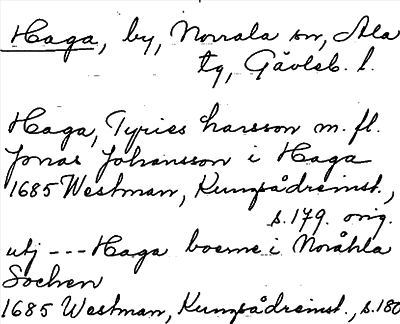 Haga, by, Norrala sn, Ala
tg, Gävleb. l.
Haga, Tyries harsson m. fl.
Jonas Johansson i Haga
1685 Westman, Kungsådreinst.,
s. 179. orig.
utj --- Haga boerne i Noråhla
Sochen
1685 Westman, Kungsådreinst., s. 180